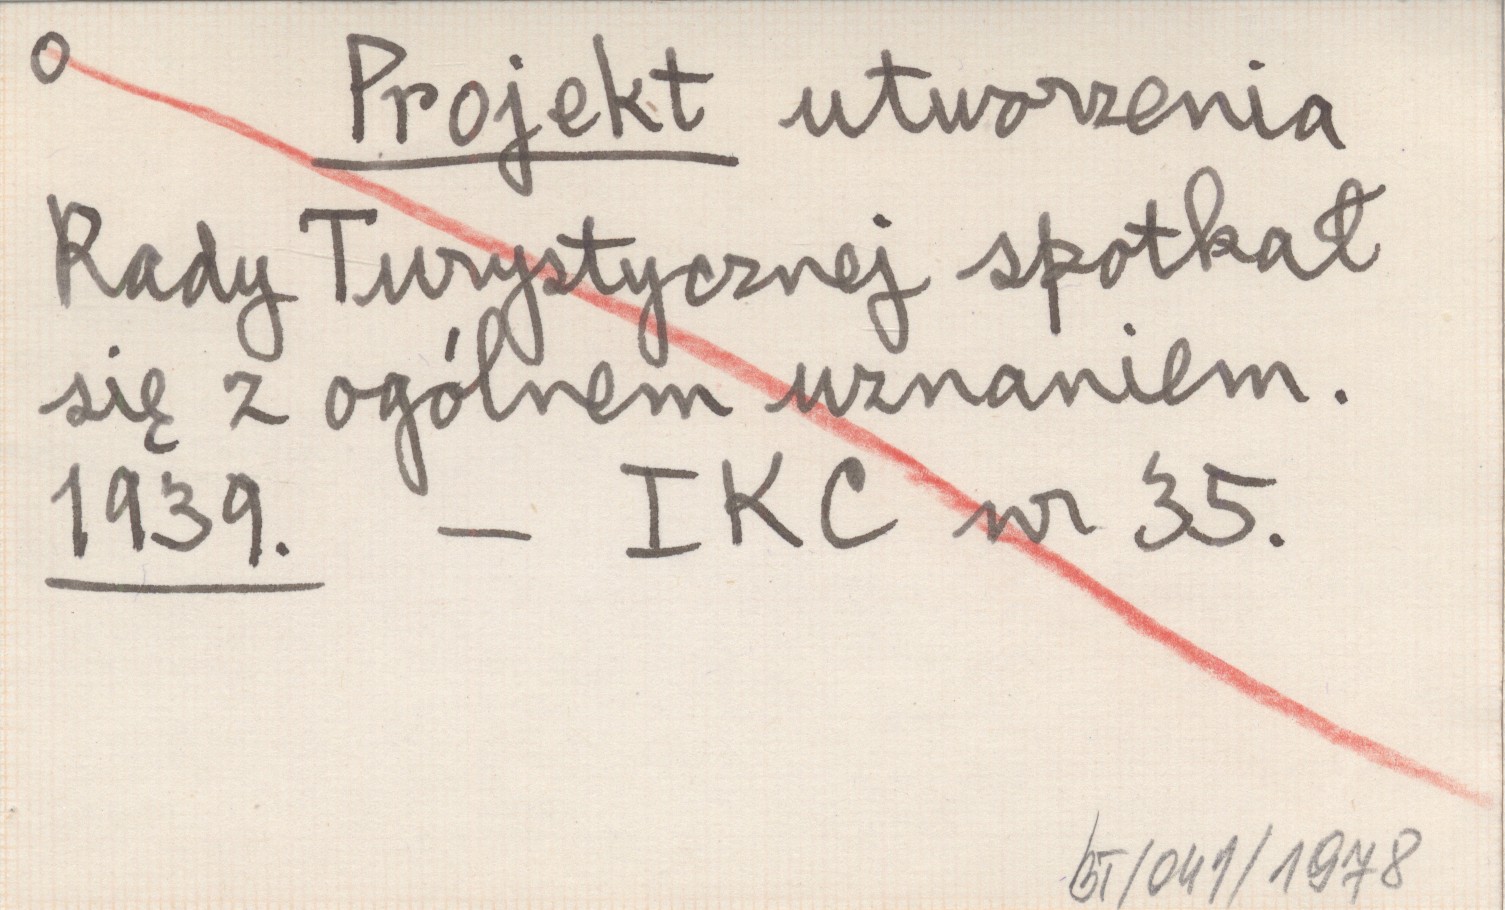 O Projekt utworzenia
Rady Turystycznej spotkał
się z ogólnem uznaniem.
1939. — IKC nr 35.
BT/041/1978